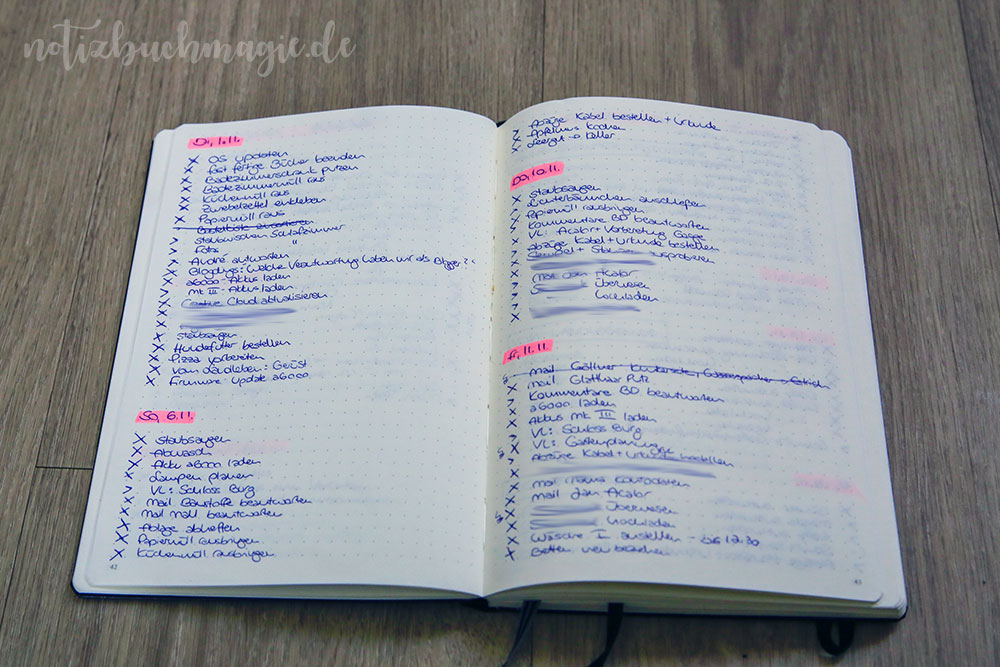 notizbuchmagie.de
Di, 1.11.
x OS updaten
x fast fertige Bücher beenden
x Badezimmerschrank putzen
x Badezimmermüll raus
x Küchenmüll raus
x Zwiebelzettel einkleben
x Papiermüll raus
> staubwischen Schlafzimmer
> Foto "
> André antworten
x Blogdings: Welche Verantwortung haben wir als Blogger?
x a6000 - Akku laden
> mk III - Akkus laden
x Creative Cloud aktualisieren
x staubsaugen
x Hundefutter bestellen
x Pizza vorbereiten
x Vom Landleben: Gerüst
x Firmware-Update a6000
So, 6.11.
x staubsaugen
x Abwasch
x Akku a6000 laden
x Lampen planen
> VL: Schloss Burg
x mail Baustoffe beantworten
x mail mall beantworten
x Ablage abheften
x Papiermüll rausbringen
x Küchenmüll rausbringen
42
> Abzüge Kabel bestellen + Urkunde
x Apfelmus kochen
x Leergut → Keller
Do, 10.11.
x staubsaugen
> Lichterbäumchen anschließen
x Papiermüll rausbringen
x Kommentare BD beantworten
x VL: Acalor + Vorbereitung
> abzüge Kabel + Urkunde bestellen
ausprobieren
x mail dan Acalor
Überweisen
hochladen
Fr, 11.11.
x mail Glatthaar Putz
x Kommentare BD beantworten
x a6000 laden
x Akkus mk III laden
> VL: Schloss Burg
> VL: Gartenplanung
> Abzüge Kabel + Urkunde bestellen
x mail
x mail dan Acalor
x Überweisen
x hochladen
x Wäsche I anstellen - bis 12.30
x Betten neu beziehen
43